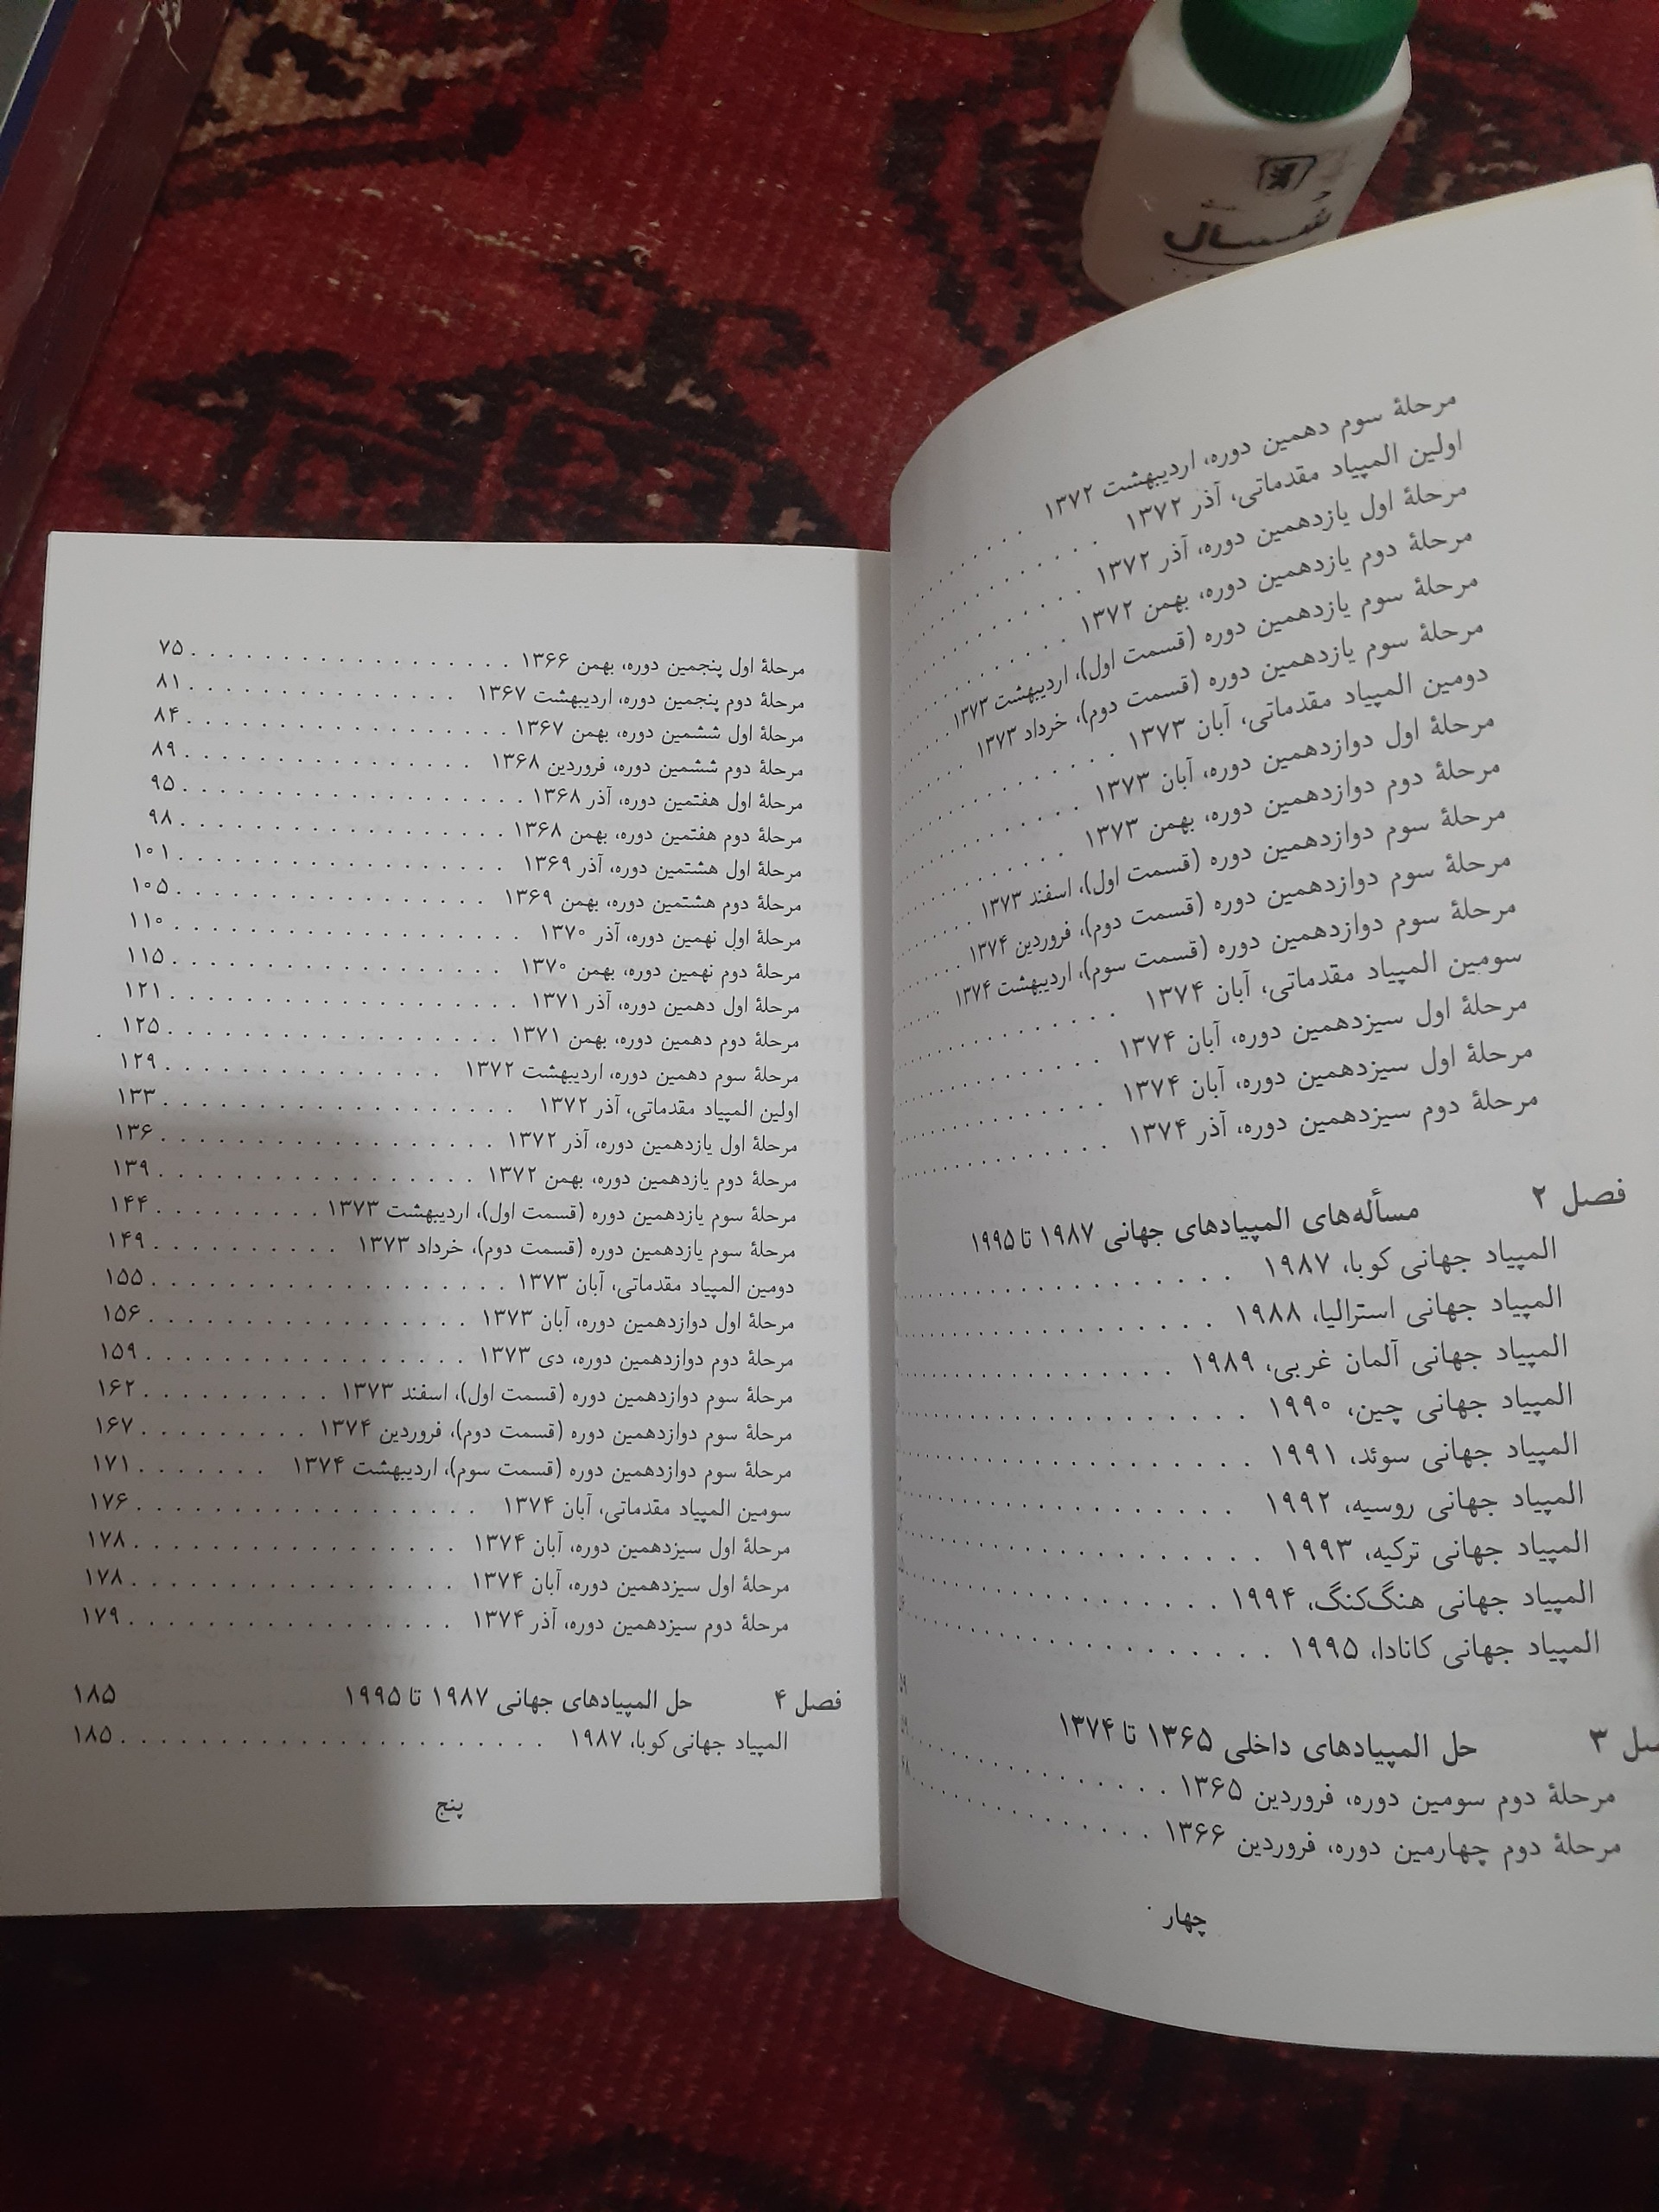 شسال
مرحلهٔ سوم دهمین دوره، اردیبهشت ۱۳۷۲
اولین المپیاد مقدماتی، آذر ۱۳۷۲
مرحلهٔ اول یازدهمین دوره، آذر ۱۳۷۲
مرحلهٔ دوم یازدهمین دوره، بهمن ۱۳۷۲
مرحلهٔ سوم یازدهمین دوره (قسمت اول)، اردیبهشت ۱۳۷۳
مرحلهٔ سوم یازدهمین دوره (قسمت دوم)، خرداد ۱۳۷۳
دومین المپیاد مقدماتی، آبان ۱۳۷۳
مرحلهٔ اول دوازدهمین دوره، آبان ۱۳۷۳
مرحلهٔ دوم دوازدهمین دوره، بهمن ۱۳۷۳
مرحلهٔ سوم دوازدهمین دوره (قسمت اول)، اسفند ۱۳۷۳
مرحلهٔ سوم دوازدهمین دوره (قسمت دوم)، فروردین ۱۳۷۴
مرحلهٔ سوم دوازدهمین دوره (قسمت سوم)، اردیبهشت ۱۳۷۴
سومین المپیاد مقدماتی، آبان ۱۳۷۴
مرحلهٔ اول سیزدهمین دوره، آبان ۱۳۷۴
مرحلهٔ اول سیزدهمین دوره، آبان ۱۳۷۴
مرحلهٔ دوم سیزدهمین دوره، آذر ۱۳۷۴
فصل ۲ مسأله‌های المپیادهای جهانی ۱۹۸۷ تا ۱۹۹۵
المپیاد جهانی کوبا، ۱۹۸۷
المپیاد جهانی استرالیا، ۱۹۸۸
المپیاد جهانی آلمان غربی، ۱۹۸۹
المپیاد جهانی چین، ۱۹۹۰
المپیاد جهانی سوئد، ۱۹۹۱
المپیاد جهانی روسیه، ۱۹۹۲
المپیاد جهانی ترکیه، ۱۹۹۳
المپیاد جهانی هنگ‌کنگ، ۱۹۹۴
المپیاد جهانی کانادا، ۱۹۹۵
صل ۳ حل المپیادهای داخلی ۱۳۶۵ تا ۱۳۷۴
مرحلهٔ دوم سومین دوره، فروردین ۱۳۶۵
مرحلهٔ دوم چهارمین دوره، فروردین ۱۳۶۶
چهار
مرحلهٔ اول پنجمین دوره، بهمن ۱۳۶۶ ۷۵
مرحلهٔ دوم پنجمین دوره، اردیبهشت ۱۳۶۷ ۸۱
مرحلهٔ اول ششمین دوره، بهمن ۱۳۶۷ ۸۴
مرحلهٔ دوم ششمین دوره، فروردین ۱۳۶۸ ۸۹
مرحلهٔ اول هفتمین دوره، آذر ۱۳۶۸ ۹۵
مرحلهٔ دوم هفتمین دوره، بهمن ۱۳۶۸ ۹۸
مرحلهٔ اول هشتمین دوره، آذر ۱۳۶۹ ۱۰۱
مرحلهٔ دوم هشتمین دوره، بهمن ۱۳۶۹ ۱۰۵
مرحلهٔ اول نهمین دوره، آذر ۱۳۷۰ ۱۱۰
مرحلهٔ دوم نهمین دوره، بهمن ۱۳۷۰ ۱۱۵
مرحلهٔ اول دهمین دوره، آذر ۱۳۷۱ ۱۲۱
مرحلهٔ دوم دهمین دوره، بهمن ۱۳۷۱ ۱۲۵
مرحلهٔ سوم دهمین دوره، اردیبهشت ۱۳۷۲ ۱۲۹
اولین المپیاد مقدماتی، آذر ۱۳۷۲ ۱۳۳
مرحلهٔ اول یازدهمین دوره، آذر ۱۳۷۲ ۱۳۶
مرحلهٔ دوم یازدهمین دوره، بهمن ۱۳۷۲ ۱۳۹
مرحلهٔ سوم یازدهمین دوره (قسمت اول)، اردیبهشت ۱۳۷۳ ۱۴۴
مرحلهٔ سوم یازدهمین دوره (قسمت دوم)، خرداد ۱۳۷۳ ۱۴۹
دومین المپیاد مقدماتی، آبان ۱۳۷۳ ۱۵۵
مرحلهٔ اول دوازدهمین دوره، آبان ۱۳۷۳ ۱۵۶
مرحلهٔ دوم دوازدهمین دوره، دی ۱۳۷۳ ۱۵۹
مرحلهٔ سوم دوازدهمین دوره (قسمت اول)، اسفند ۱۳۷۳ ۱۶۲
مرحلهٔ سوم دوازدهمین دوره (قسمت دوم)، فروردین ۱۳۷۴ ۱۶۷
مرحلهٔ سوم دوازدهمین دوره (قسمت سوم)، اردیبهشت ۱۳۷۴ ۱۷۱
سومین المپیاد مقدماتی، آبان ۱۳۷۴ ۱۷۶
مرحلهٔ اول سیزدهمین دوره، آبان ۱۳۷۴ ۱۷۸
مرحلهٔ اول سیزدهمین دوره، آبان ۱۳۷۴ ۱۷۸
مرحلهٔ دوم سیزدهمین دوره، آذر ۱۳۷۴ ۱۷۹
فصل ۴ حل المپیادهای جهانی ۱۹۸۷ تا ۱۹۹۵ ۱۸۵
المپیاد جهانی کوبا، ۱۹۸۷ ۱۸۵
پنج